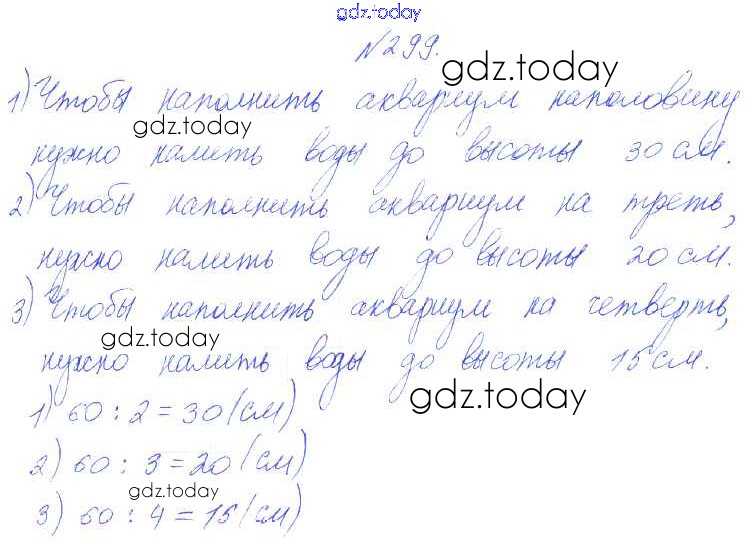 gdz.today
№299.
gdz.today
1) Чтобы наполнить аквариум наполовину
gdz.today
нужно налить воды до высоты 30 см.
2) Чтобы наполнить аквариум на треть,
нужно налить воды до высоты 20 см.
3) Чтобы наполнить аквариум на четверть,
gdz.today
нужно налить воды до высоты 15 см.
gdz.today
1) 60 : 2 = 30 (см)
2) 60 : 3 = 20 (см)
gdz.today
3) 60 : 4 = 15 (см)